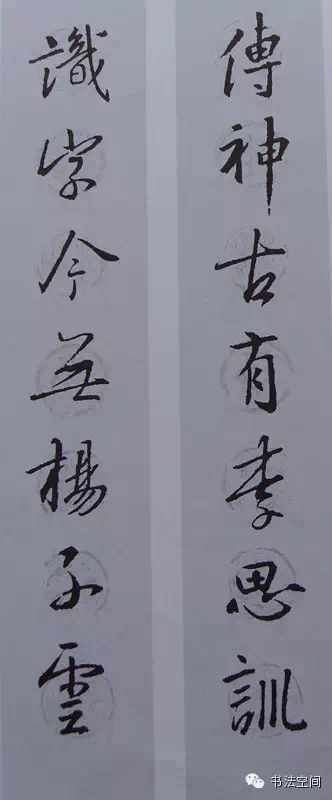 傳神古有李思訓
識字今無楊子雲
书法空间